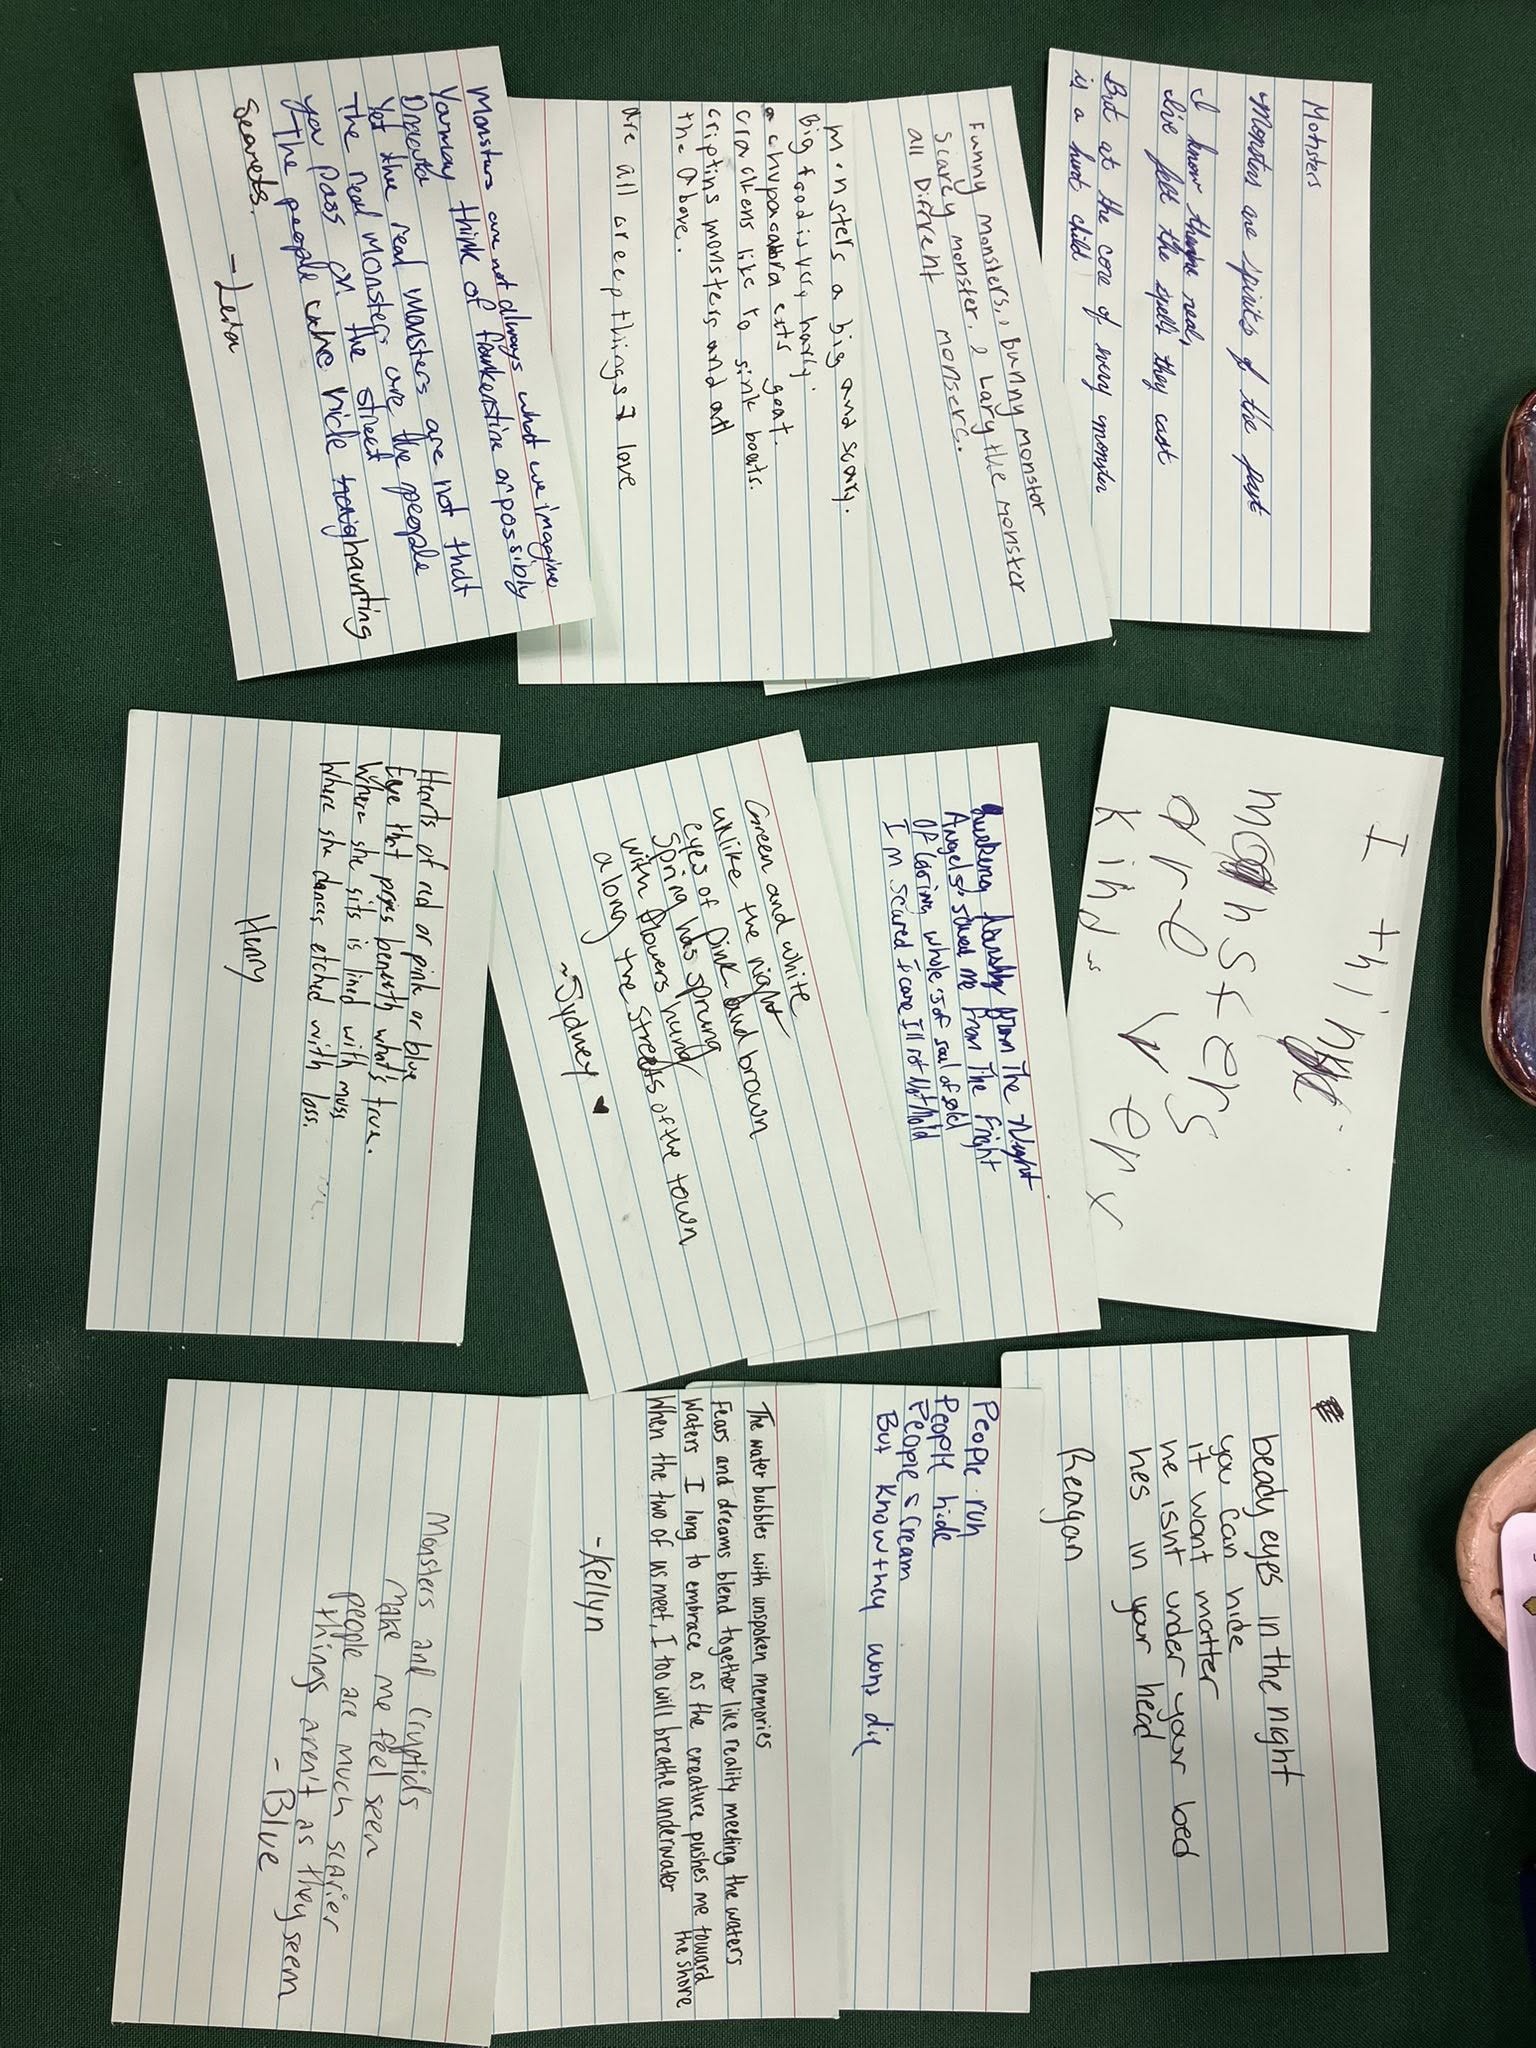 Monsters
Monsters are spirits of the past
I know they're real,
I've felt the spells they cast
But at the core of every monster
is a hurt child
Funny monsters, bunny monstor
Scarey monster, Lary the monster
all Diffrent monsers.
Monsters a big and scary.
Big food is very harly.
a chupacabra eats goat.
crackens like to sink boats.
criptins monsters and all
the above.
are all creep things I love
Monsters are not always what we imagine
You may think of frankenstine or possibly
Dracula
Yet the real monsters are not that
The real monsters are the people
you pass on the street
The people who hide haunting
secrets.
- Leia
I think
monsters
are ver y
kind
from The Night
Angels, saved me from The Fright
Of losing whole is of soul of gold
I'm scared I care Ill not Not hold
Green and white
unlike the night
eyes of pink and brown
Spring has sprung
with flowers hung
along the streets of the town
~Sydney ♥
Hearts of red or pink or blue
Eye that pops beneath what's true.
Where she sits is lined with moss
Where she dances etched with loss.
Henry
beady eyes in the night
you can hide
it wont matter
he isnt under your bed
hes in your head
Reagan
People run
People hide
People scream
But know they wont die
The water bubbles with unspoken memories
Fears and dreams blend together like reality meeting the waters
Waters I long to embrace as the creature pushes me toward
the shore
When the two of us meet, I too will breathe underwater
-Kellyn
Monsters and Cryptids
make me feel seen
people are much scarier
things aren't as they seem
- Blue